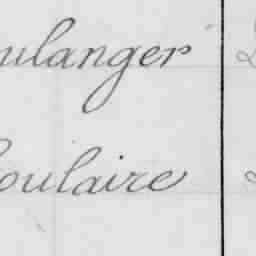 oulanger
oulaire